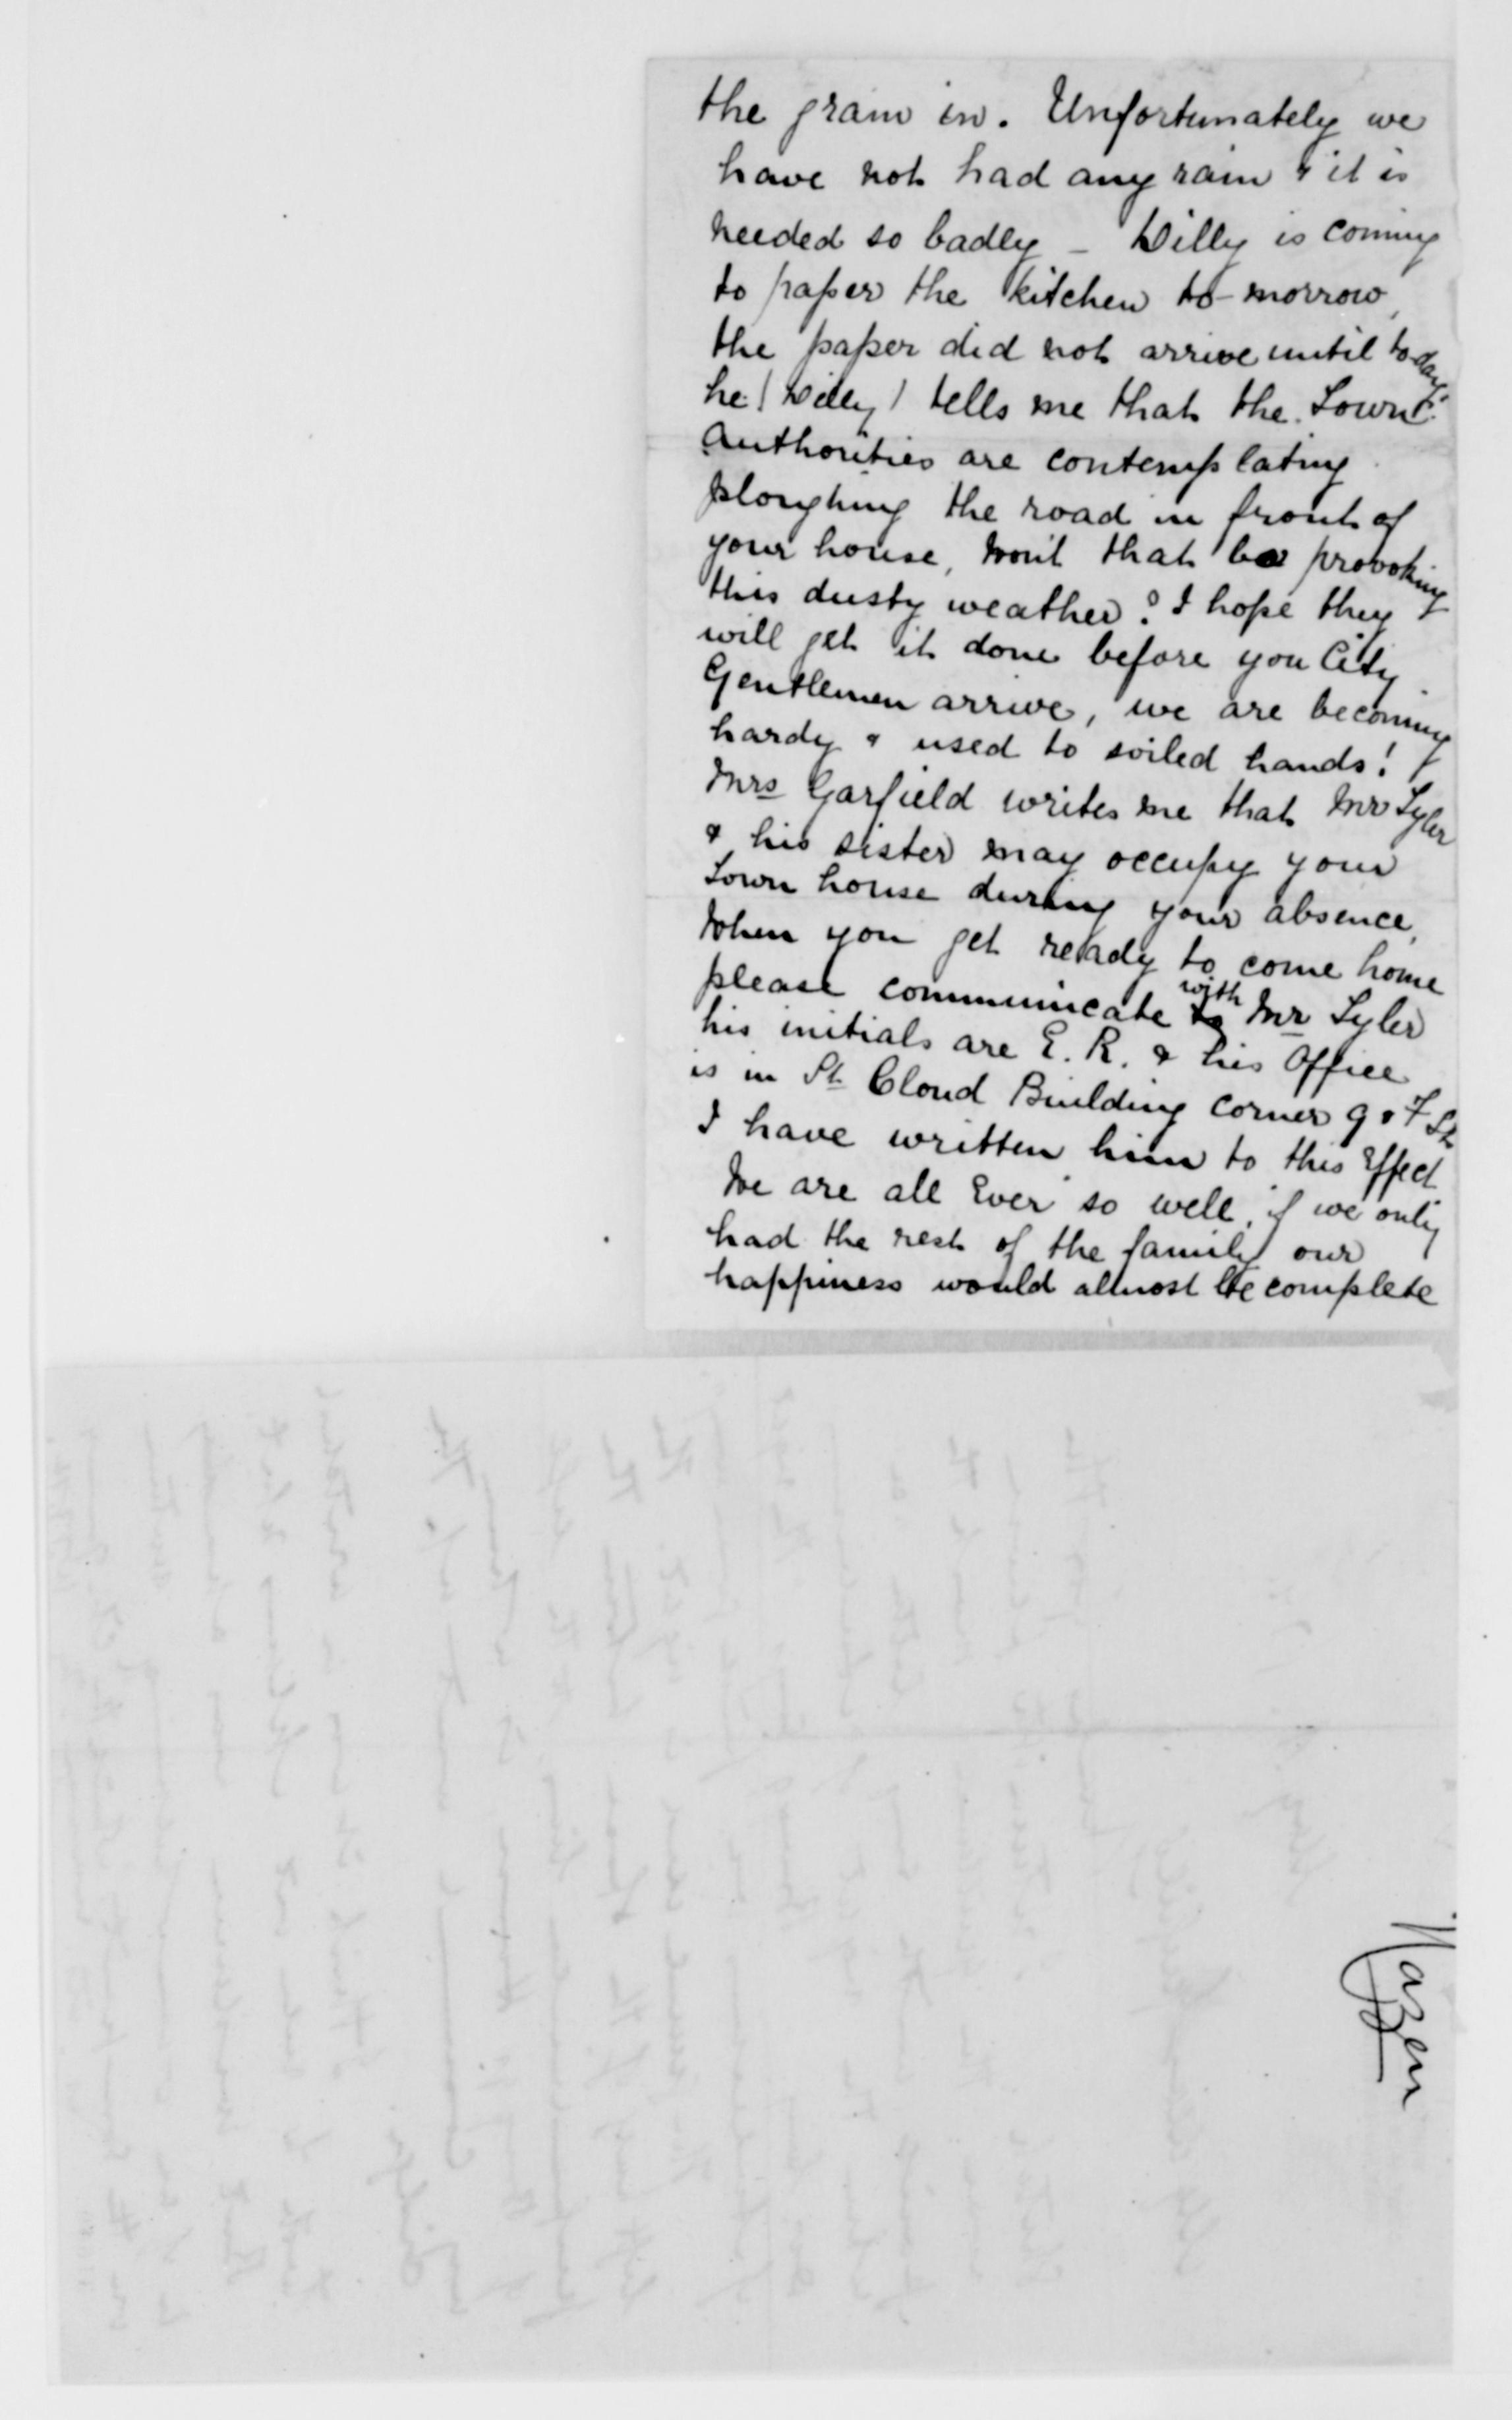 the grain in. Unfortunately we
have not had any rain & it is
needed so badly – Willy is coming
to paper the kitchen to-morrow,
the paper did not arrive until today
he (Willy) tells me that the Town
Authorities are contemplating
ploughing the road in front of
your house, won't that be provoking
this dusty weather? I hope they
will get it done before you City
Gentlemen arrive, we are becoming
hardy & used to soiled hands!
Mrs Garfield writes me that Mr Tyler
& his sister may occupy your
Town house during your absence,
When you get ready to come home
please communicate to with Mr Tyler
his initials are E. R. & his Office
is in St Cloud Building corner 9 & F St
I have written him to this Effect
We are all Ever so well, if we only
had the rest of the family our
happiness would almost be complete
Hazen